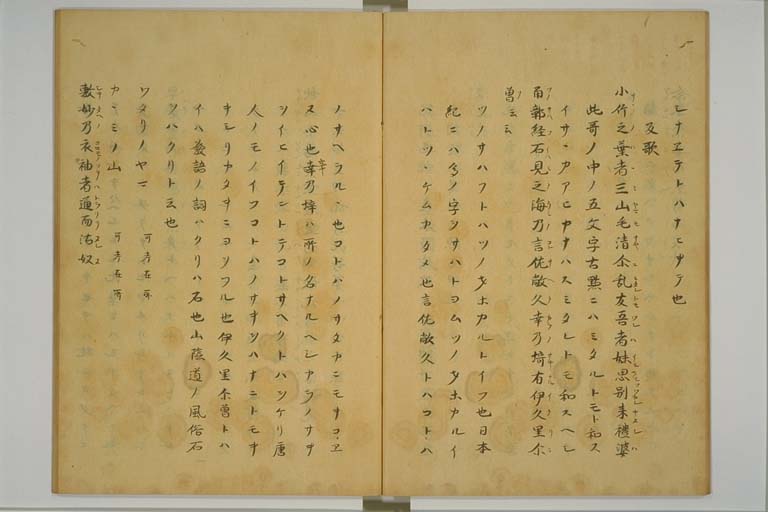 シナエテトハナヒキテ也
反歌
小竹之葉者三山毛清尓乱友吾者妹思別来礼婆
此哥ノ中ノ五文字古點ニハミタルトモト和ス
イサヽカアヒカナハスミタレトモ和スヘシ
角鄣経石見之海乃言佐敝久辛乃埼有伊久里尓
曽云云
ツノサハフトハツノ タホカルトイフ也日本
紀ニハ多ノ字ヲサハトヨムツノ タホカルイ
ハトツヽケムカタメ也言佐敝久トハコトハ
ノサヘラルヽ也コトハノサタカニモキコヱ
ヌ心也辛乃埼ハ所ノ名ナルヘシカラノサキ
ツイヒイテントテコトサヘクトハツヽケリ唐
人ノモノイフコトハノサキツハナニトモキ
キシリカタキニヨソフル也伊久里尓曽トハ
イハ發語ノ詞ハクリハ石也山陰道ノ風俗石
ツハクリト云也
ワタリノヤマ 可考在所
カミノ山 可考在所
敷妙乃衣袖者通而沾奴